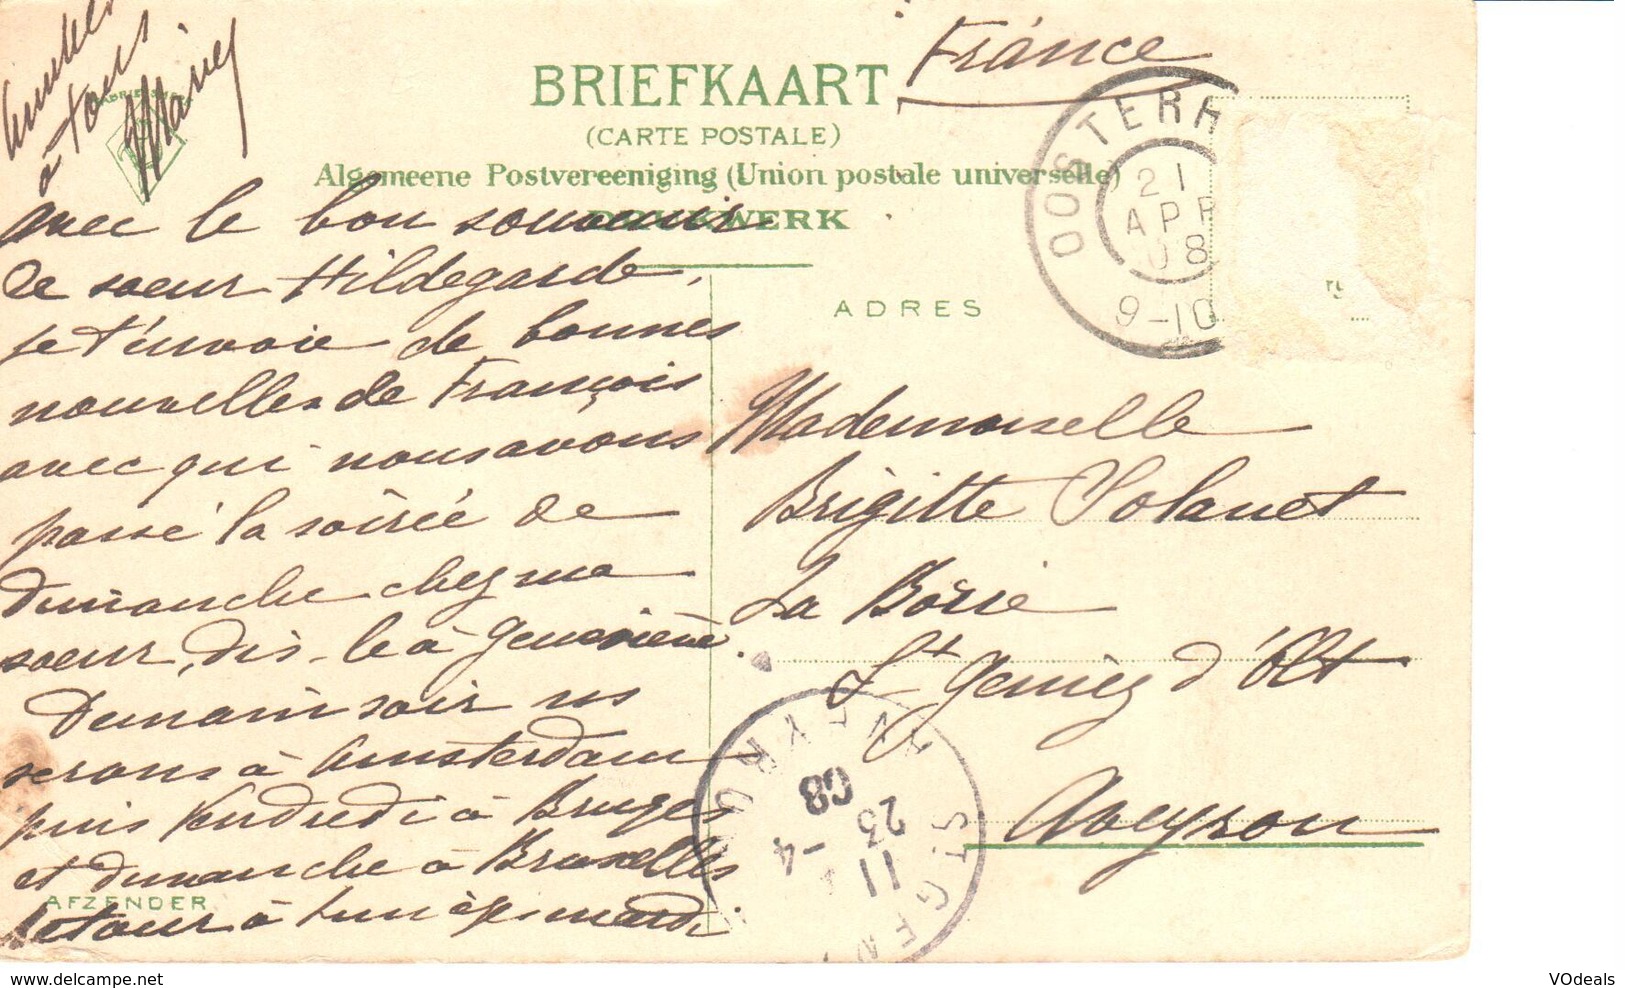 France
BRIEFKAART
(CARTE POSTALE)
Algemeene Postvereeniging (Union postale universelle)
DRUKWERK
OOSTERB
21
APR
08
9-10
ADRES
avec le bon souvenir
de soeur Hildegarde,
je t'envoie de bonnes
nouvelles de François
avec qui nous avons
passé la soirée de
dimanche chez ma
soeur, dis-le à Geneviève.
Demain soir ns
serons à Amsterdam
puis Vendredi à Bruges
et dimanche à Bruxelles
retour à mardi.
à tous
Mademoiselle
Brigitte Solanet
La Borie
St Geniès d'Olt
Aveyron
ST GEN
AVEYRON
11
23 -4
08
AFZENDER
VOdeals